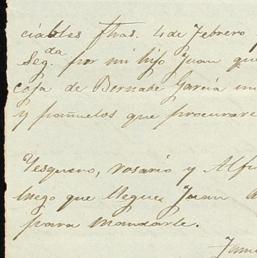 ciables fhas. 4 de Febrero
Seg.da por mi hijo Juan que
caja de Bernabe Garcia un
y pañuelos que procurare
Yesquero, rosario y Alfi
luego que llegue Juan a
para mandarte.